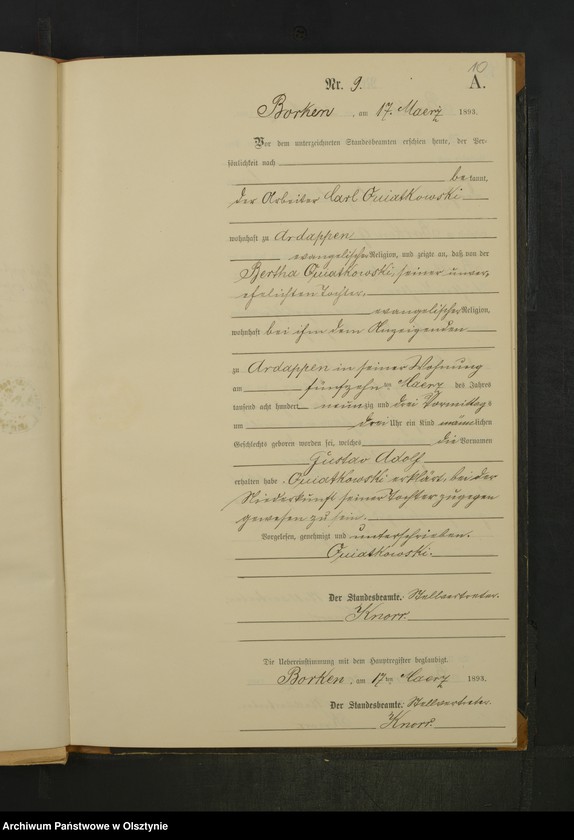 10
Nr. 9. A.
Borken, am 17. Maerz 1893.
Vor dem unterzeichneten Standesbeamten erschien heute, der Per-
sönlichkeit nach
be kannt,
der Arbeiter Carl Quiatkowski
wohnhaft zu Ardappen
evangelischer Religion, und zeigte an, daß von der
Bertha Quiatkowski, seiner unver,
ehelichten Tochter,
evangelischer Religion,
wohnhaft bei ihm dem Anzeigenden
zu Ardappen in seiner Wohnung
am fünfzehn ten Maerz des Jahres
tausend acht hundert neunzig und drei Vormittags
um drei Uhr ein Kind männlichen
Geschlechts geboren worden sei, welches die Vornamen
Gustav Adolf
erhalten habe. Quiatkowski erklärt, bei der
Niederkunft seiner Tochter zugegen
gewesen zu sein.
Vorgelesen, genehmigt und unterschrieben.
Quiatkowski.
Der Standesbeamte. Stellvertreter.
Knorr.
Die Uebereinstimmung mit dem Hauptregister beglaubigt.
Borken, am 17ten Maerz 1893.
Der Standesbeamte. Stellvertreter.
Knorr.
Archiwum Państwowe w Olsztynie